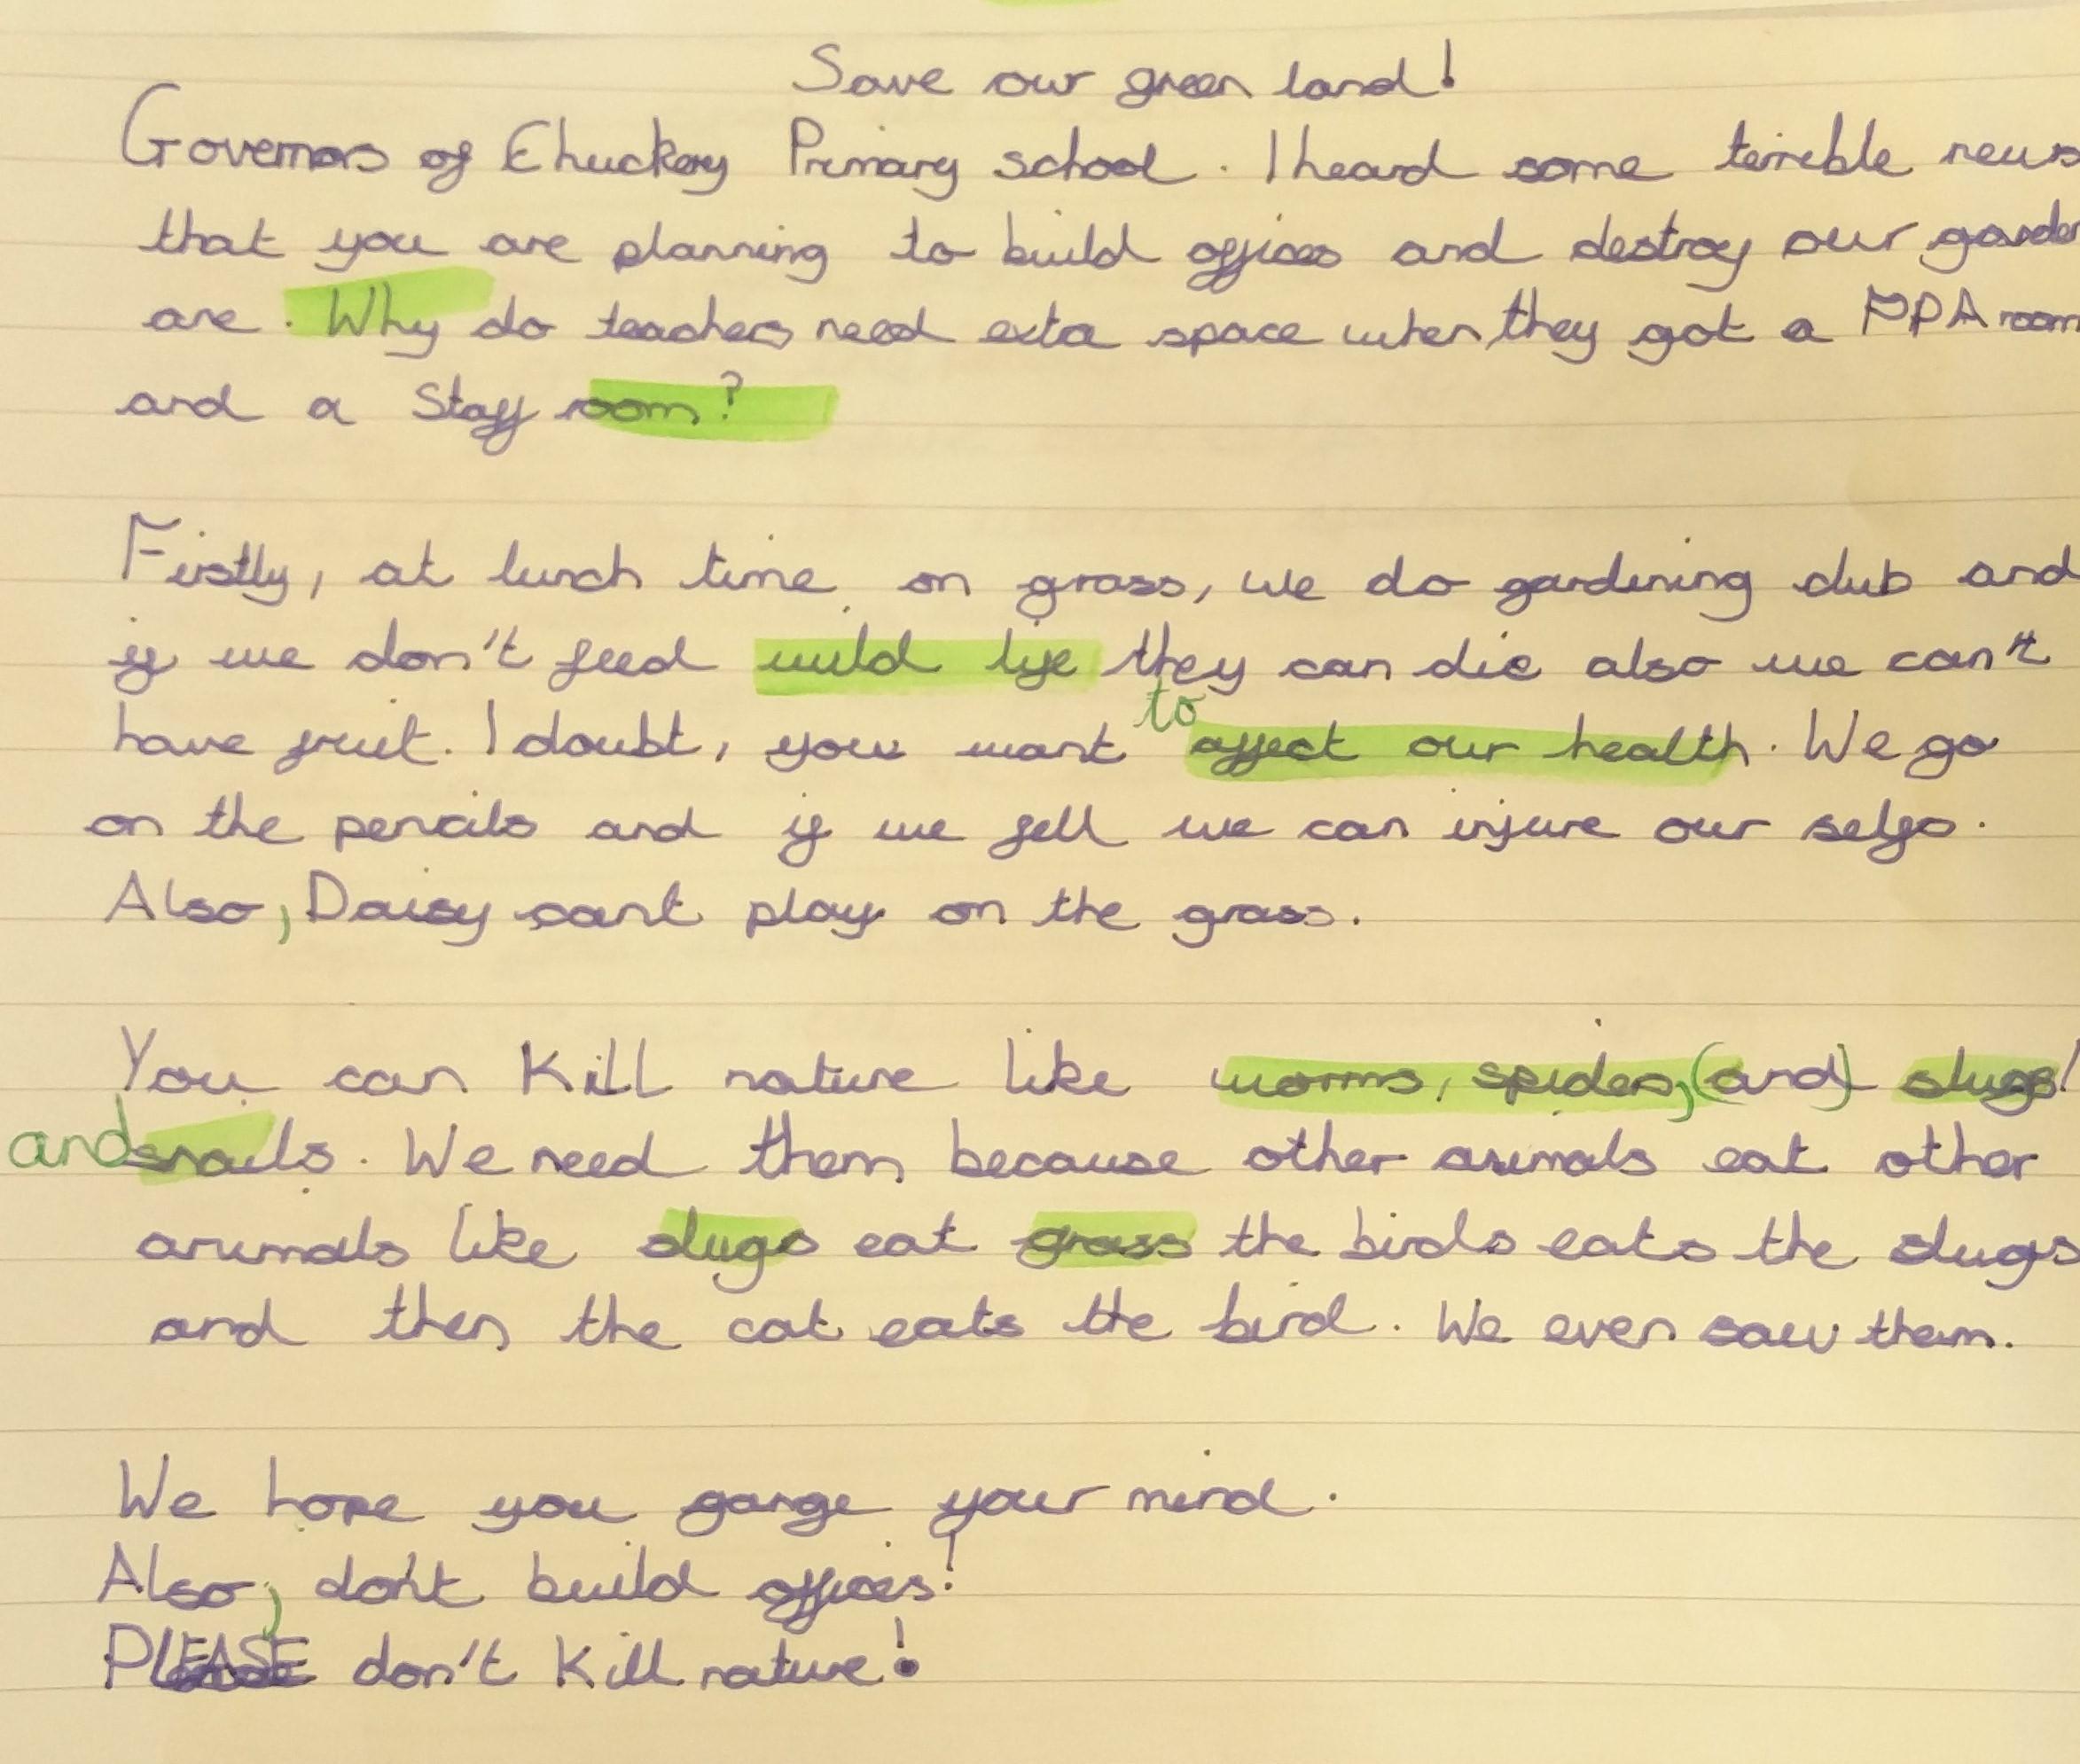 Save our green land!
Governors of Chuckery Primary school. I heard some terrible news
that you are planning to build offices and destroy our garden
are. Why do teachers need exta space when they got a PPA room
and a Staff room?
Firstly, at lunch time on grass, we do gardining club and
if we don't feed wild life they can die also we can't
have fruit. I doubt, you want to affect our health. We go
on the pencils and if we fell we can injure our selfs.
Also, Daisy cant play on the grass.
You can Kill nature like worms, spiders, (and) slugs/
and snails. We need them because other animals eat other
animals like slugs eat grass the birds eats the slugs
and then the cat eats the bird. We even saw them.
We hope you gange your mind.
Also, don't build offices!
PLEASE don't Kill nature!